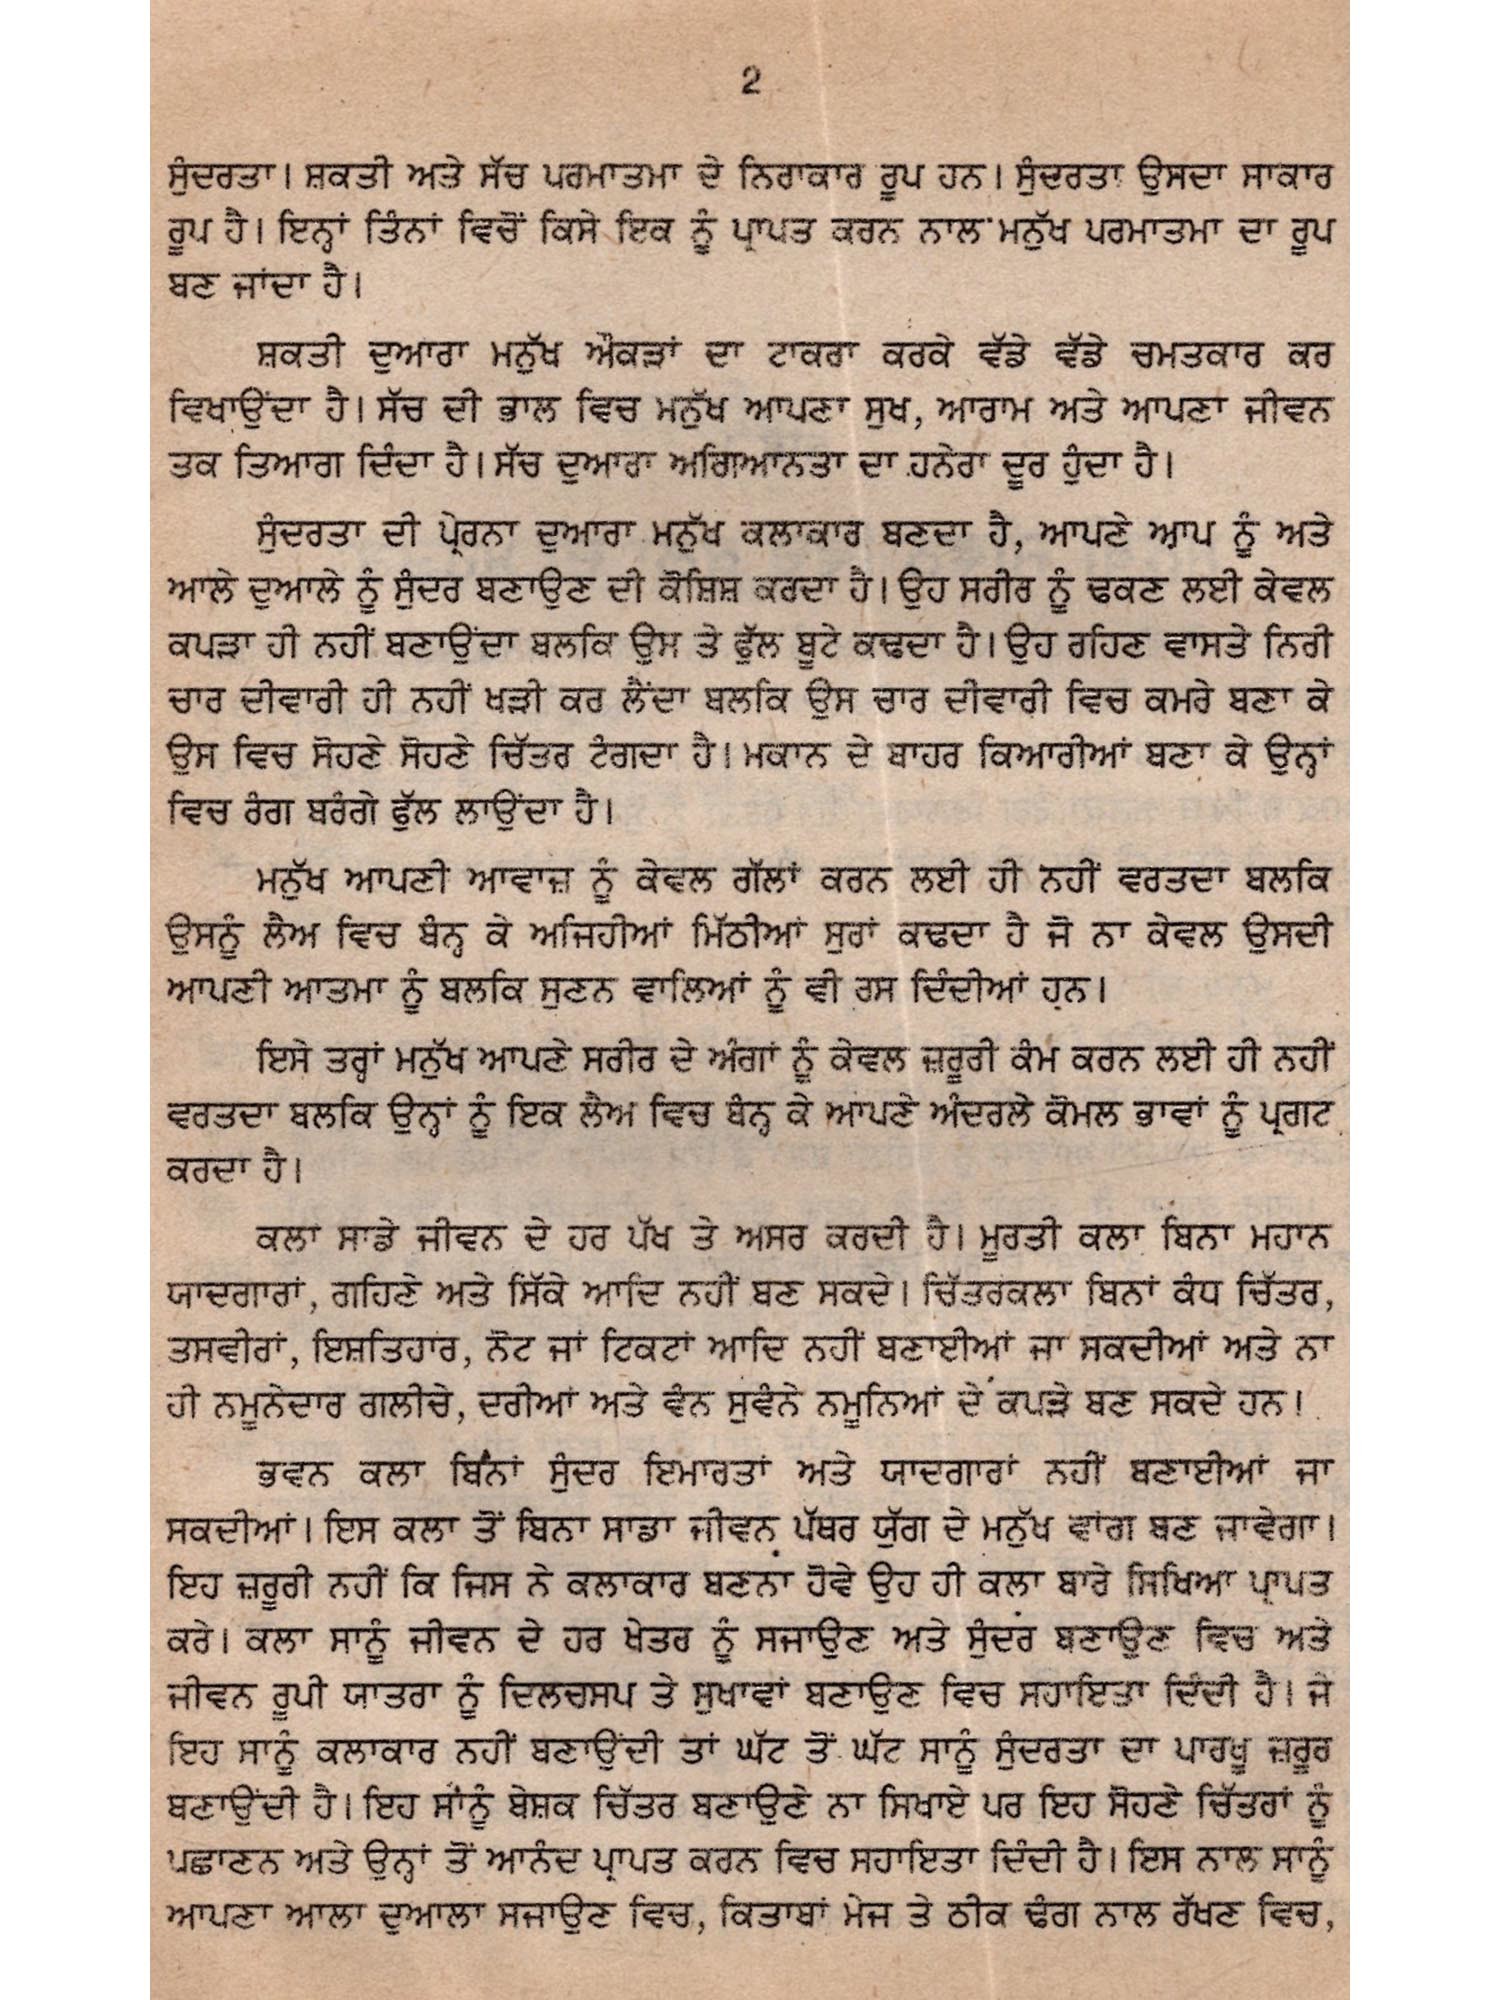 2
ਸੁੰਦਰਤਾ। ਸ਼ਕਤੀ ਅਤੇ ਸੱਚ ਪਰਮਾਤਮਾ ਦੇ ਨਿਰਾਕਾਰ ਰੂਪ ਹਨ। ਸੁੰਦਰਤਾ ਉਸਦਾ ਸਾਕਾਰ
ਰੂਪ ਹੈ। ਇਨ੍ਹਾਂ ਤਿੰਨਾਂ ਵਿਚੋਂ ਕਿਸੇ ਇਕ ਨੂੰ ਪ੍ਰਾਪਤ ਕਰਨ ਨਾਲ ਮਨੁੱਖ ਪਰਮਾਤਮਾ ਦਾ ਰੂਪ
ਬਣ ਜਾਂਦਾ ਹੈ।
ਸ਼ਕਤੀ ਦੁਆਰਾ ਮਨੁੱਖ ਔਕੜਾਂ ਦਾ ਟਾਕਰਾ ਕਰਕੇ ਵੱਡੇ ਵੱਡੇ ਚਮਤਕਾਰ ਕਰ
ਵਿਖਾਉਂਦਾ ਹੈ। ਸੱਚ ਦੀ ਭਾਲ ਵਿਚ ਮਨੁੱਖ ਆਪਣਾ ਸੁਖ, ਆਰਾਮ ਅਤੇ ਆਪਣਾ ਜੀਵਨ
ਤਕ ਤਿਆਗ ਦਿੰਦਾ ਹੈ। ਸੱਚ ਦੁਆਰਾ ਅਗਿਆਨਤਾ ਦਾ ਹਨੇਰਾ ਦੂਰ ਹੁੰਦਾ ਹੈ।
ਸੁੰਦਰਤਾ ਦੀ ਪ੍ਰੇਰਨਾ ਦੁਆਰਾ ਮਨੁੱਖ ਕਲਾਕਾਰ ਬਣਦਾ ਹੈ, ਆਪਣੇ ਆਪ ਨੂੰ ਅਤੇ
ਆਲੇ ਦੁਆਲੇ ਨੂੰ ਸੁੰਦਰ ਬਣਾਉਣ ਦੀ ਕੋਸ਼ਿਸ਼ ਕਰਦਾ ਹੈ। ਉਹ ਸਰੀਰ ਨੂੰ ਢਕਣ ਲਈ ਕੇਵਲ
ਕਪੜਾ ਹੀ ਨਹੀਂ ਬਣਾਉਂਦਾ ਬਲਕਿ ਉਸ ਤੇ ਫੁੱਲ ਬੂਟੇ ਕਢਦਾ ਹੈ। ਉਹ ਰਹਿਣ ਵਾਸਤੇ ਨਿਰੀ
ਚਾਰ ਦੀਵਾਰੀ ਹੀ ਨਹੀਂ ਖੜੀ ਕਰ ਲੈਂਦਾ ਬਲਕਿ ਉਸ ਚਾਰ ਦੀਵਾਰੀ ਵਿਚ ਕਮਰੇ ਬਣਾ ਕੇ
ਉਸ ਵਿਚ ਸੋਹਣੇ ਸੋਹਣੇ ਚਿੱਤਰ ਟੰਗਦਾ ਹੈ। ਮਕਾਨ ਦੇ ਬਾਹਰ ਕਿਆਰੀਆਂ ਬਣਾ ਕੇ ਉਨ੍ਹਾਂ
ਵਿਚ ਰੰਗ ਬਰੰਗੇ ਫੁੱਲ ਲਾਉਂਦਾ ਹੈ।
ਮਨੁੱਖ ਆਪਣੀ ਆਵਾਜ਼ ਨੂੰ ਕੇਵਲ ਗੱਲਾਂ ਕਰਨ ਲਈ ਹੀ ਨਹੀਂ ਵਰਤਦਾ ਬਲਕਿ
ਉਸਨੂੰ ਲੈਅ ਵਿਚ ਬੰਨ੍ਹ ਕੇ ਅਜਿਹੀਆਂ ਮਿੱਠੀਆਂ ਸੁਰਾਂ ਕਢਦਾ ਹੈ ਜੋ ਨਾ ਕੇਵਲ ਉਸਦੀ
ਆਪਣੀ ਆਤਮਾ ਨੂੰ ਬਲਕਿ ਸੁਣਨ ਵਾਲਿਆਂ ਨੂੰ ਵੀ ਰਸ ਦਿੰਦੀਆਂ ਹਨ।
ਇਸੇ ਤਰ੍ਹਾਂ ਮਨੁੱਖ ਆਪਣੇ ਸਰੀਰ ਦੇ ਅੰਗਾਂ ਨੂੰ ਕੇਵਲ ਜ਼ਰੂਰੀ ਕੰਮ ਕਰਨ ਲਈ ਹੀ ਨਹੀਂ
ਵਰਤਦਾ ਬਲਕਿ ਉਨ੍ਹਾਂ ਨੂੰ ਇਕ ਲੈਅ ਵਿਚ ਬੰਨ੍ਹ ਕੇ ਆਪਣੇ ਅੰਦਰਲੇ ਕੋਮਲ ਭਾਵਾਂ ਨੂੰ ਪ੍ਰਗਟ
ਕਰਦਾ ਹੈ।
ਕਲਾ ਸਾਡੇ ਜੀਵਨ ਦੇ ਹਰ ਪੱਖ ਤੇ ਅਸਰ ਕਰਦੀ ਹੈ। ਮੂਰਤੀ ਕਲਾ ਬਿਨਾ ਮਹਾਨ
ਯਾਦਗਾਰਾਂ, ਗਹਿਣੇ ਅਤੇ ਸਿੱਕੇ ਆਦਿ ਨਹੀਂ ਬਣ ਸਕਦੇ। ਚਿੱਤਰਕਲਾ ਬਿਨਾਂ ਕੰਧ ਚਿੱਤਰ,
ਤਸਵੀਰਾਂ, ਇਸ਼ਤਿਹਾਰ, ਨੋਟ ਜਾਂ ਟਿਕਟਾਂ ਆਦਿ ਨਹੀਂ ਬਣਾਈਆਂ ਜਾ ਸਕਦੀਆਂ ਅਤੇ ਨਾ
ਹੀ ਨਮੂਨੇਦਾਰ ਗਲੀਚੇ, ਦਰੀਆਂ ਅਤੇ ਵੰਨ ਸੁਵੰਨੇ ਨਮੂਨਿਆਂ ਦੇ ਕਪੜੇ ਬਣ ਸਕਦੇ ਹਨ।
ਭਵਨ ਕਲਾ ਬਿਨਾਂ ਸੁੰਦਰ ਇਮਾਰਤਾਂ ਅਤੇ ਯਾਦਗਾਰਾਂ ਨਹੀਂ ਬਣਾਈਆਂ ਜਾ
ਸਕਦੀਆਂ। ਇਸ ਕਲਾ ਤੋਂ ਬਿਨਾ ਸਾਡਾ ਜੀਵਨ ਪੱਥਰ ਯੁੱਗ ਦੇ ਮਨੁੱਖ ਵਾਂਗ ਬਣ ਜਾਵੇਗਾ।
ਇਹ ਜ਼ਰੂਰੀ ਨਹੀਂ ਕਿ ਜਿਸ ਨੇ ਕਲਾਕਾਰ ਬਣਨਾ ਹੋਵੇ ਉਹ ਹੀ ਕਲਾ ਬਾਰੇ ਸਿਖਿਆ ਪ੍ਰਾਪਤ
ਕਰੇ। ਕਲਾ ਸਾਨੂੰ ਜੀਵਨ ਦੇ ਹਰ ਖੇਤਰ ਨੂੰ ਸਜਾਉਣ ਅਤੇ ਸੁੰਦਰ ਬਣਾਉਣ ਵਿਚ ਅਤੇ
ਜੀਵਨ ਰੂਪੀ ਯਾਤਰਾ ਨੂੰ ਦਿਲਚਸਪ ਤੇ ਸੁਖਾਵਾਂ ਬਣਾਉਣ ਵਿਚ ਸਹਾਇਤਾ ਦਿੰਦੀ ਹੈ। ਜੇ
ਇਹ ਸਾਨੂੰ ਕਲਾਕਾਰ ਨਹੀਂ ਬਣਾਉਂਦੀ ਤਾਂ ਘੱਟ ਤੋਂ ਘੱਟ ਸਾਨੂੰ ਸੁੰਦਰਤਾ ਦਾ ਪਾਰਖੂ ਜ਼ਰੂਰ
ਬਣਾਉਂਦੀ ਹੈ। ਇਹ ਸਾਂਨੂੰ ਬੇਸ਼ਕ ਚਿੱਤਰ ਬਣਾਉਣੇ ਨਾ ਸਿਖਾਏ ਪਰ ਇਹ ਸੋਹਣੇ ਚਿੱਤਰਾਂ ਨੂੰ
ਪਛਾਣਨ ਅਤੇ ਉਨ੍ਹਾਂ ਤੋਂ ਆਨੰਦ ਪ੍ਰਾਪਤ ਕਰਨ ਵਿਚ ਸਹਾਇਤਾ ਦਿੰਦੀ ਹੈ। ਇਸ ਨਾਲ ਸਾਨੂੰ
ਆਪਣਾ ਆਲਾ ਦੁਆਲਾ ਸਜਾਉਣ ਵਿਚ, ਕਿਤਾਬਾਂ ਮੇਜ ਤੇ ਠੀਕ ਢੰਗ ਨਾਲ ਰੱਖਣ ਵਿਚ,